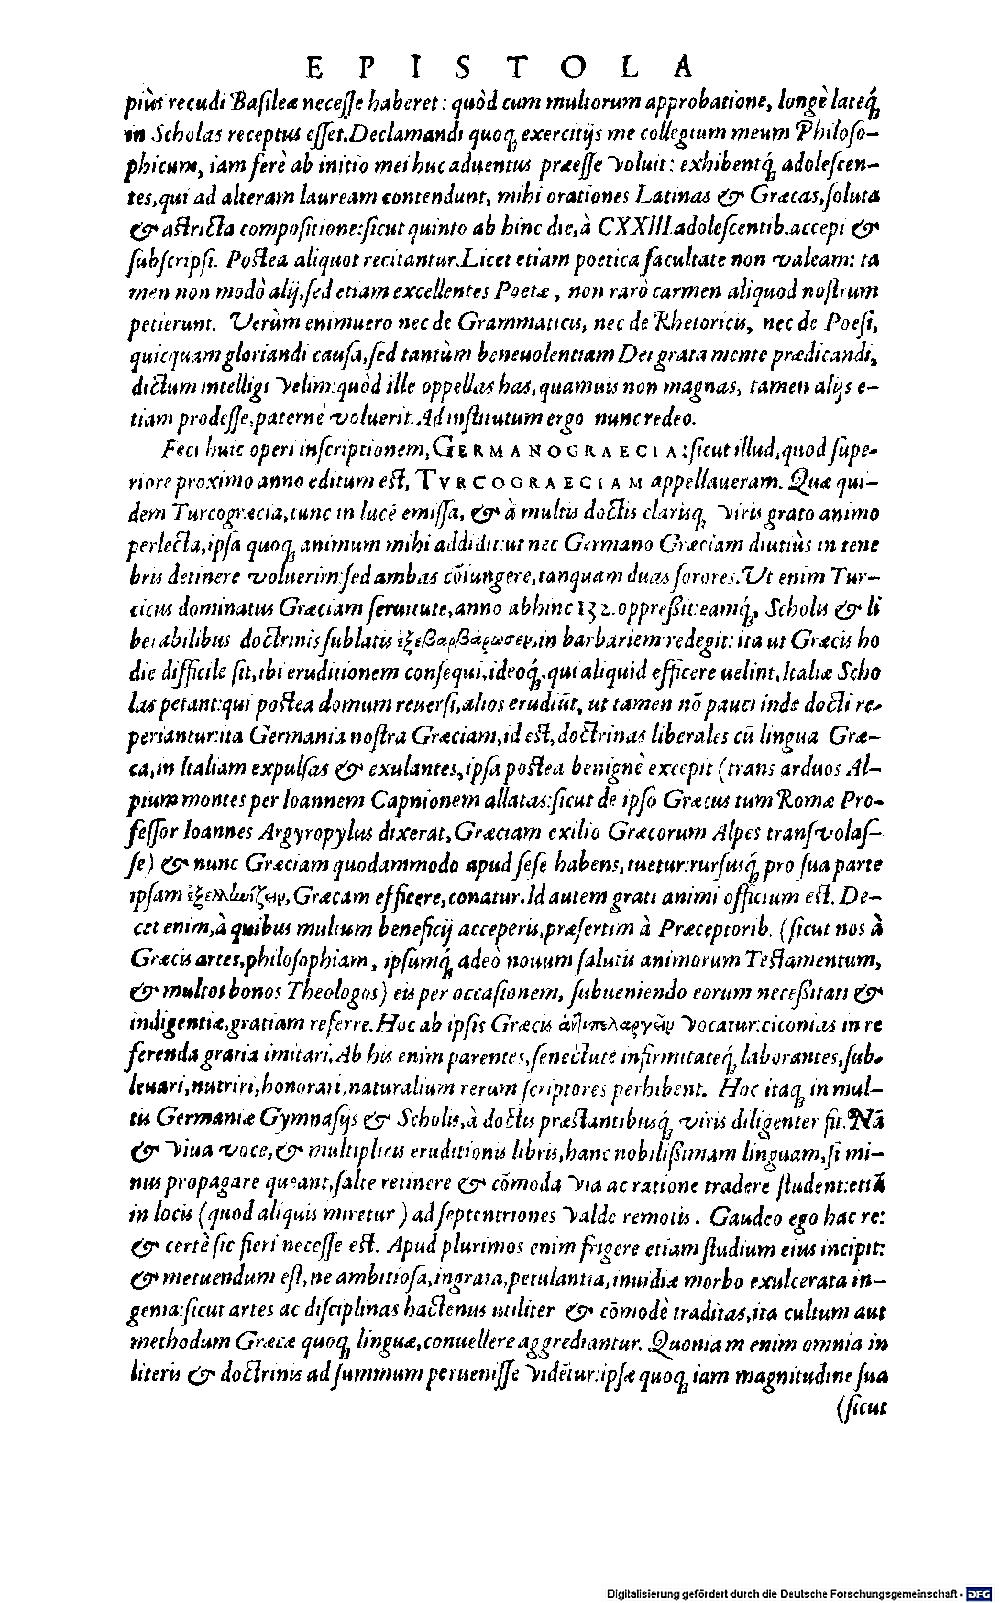 EPISTOLA
piùs recudi Basileæ necesse haberet: quòd cum multorum approbatione, longè lateq́;
in Scholas receptus esset. Declamandi quoq; exercitijs me collegium meum Philoso-
phicum, iam ferè ab initio mei huc aduentus præesse voluit: exhibentq́; adolescen-
tes, qui ad alteram lauream contendunt, mihi orationes Latinas & Græcas, soluta
& astricta compositione: sicut quinto ab hinc die, à CXXIII. adolescentib. accepi &
subscripsi. Postea aliquot recitantur. Licet etiam poetica facultate non valeam: ta
men non modò alij, sed etiam excellentes Poetæ, non rarò carmen aliquod nostrum
petierunt. Verùm enimuero nec de Grammaticis, nec de Rhetoricis, nec de Poesi,
quicquam gloriandi causa, sed tantùm beneuolentiam Dei grata mente prædicandi,
dictum intelligi velim: quòd ille oppellas has, quamuis non magnas, tamen alijs e-
tiam prodesse, paternè voluerit. Ad institutum ergo nunc redeo.
Feci huic operi inscriptionem, GERMANOGRAECIA: sicut illud, quod supe-
riore proximo anno editum est, TVRCOGRAECIAM appellaueram. Quæ qui-
dem Turcogræcia, tunc in lucẽ emissa, & à multis doctis clarisq; viris grato animo
perlecta, ipsa quoq; animum mihi addidit: ut nec Germano Græciam diutiùs in tene
bris detinere voluerim: sed ambas cõiungere, tanquam duas sorores. Ut enim Tur-
cicus dominatus Græciam seruitute, anno abhinc 132. oppreßit: eamq́;, Scholis & li
beralibus doctrinis sublatis ἐξεβαρβάρωσεν, in barbariem redegit: ita ut Græcis ho
die difficile sit, ibi eruditionem consequi, ideoq́;, qui aliquid efficere uelint, Italiæ Scho
las petant: qui postea domum reuersi, alios erudiũt, ut tamen nõ pauci inde docti re-
periantur: ita Germania nostra Græciam, id est, doctrinas liberales cũ lingua Græ-
ca, in Italiam expulsas & exulantes, ipsa postea benignè excepit (trans arduos Al-
pium montes per Ioannem Capnionem allatas: sicut de ipso Græcus tum Romæ Pro-
fessor Ioannes Argyropylus dixerat, Græciam exilio Græcorum Alpes transvolas-
se) & nunc Græciam quodammodo apud sese habens, tuetur: rursusq́; pro sua parte
ipsam ἐξελληνίζειν, Græcam efficere, conatur. Id autem grati animi officium est. De-
cet enim, à quibus multum beneficij acceperis, præsertim à Præceptorib. (sicut nos à
Græcis artes, philosophiam, ipsumq́; adeò nouum salutis animorum Testamentum,
& multos bonos Theologos) eis per occasionem, subueniendo eorum neceßitati &
indigentiæ, gratiam referre. Hoc ab ipsis Græcis ἀντιπελαργεῖν vocatur: ciconias in re
ferenda gratia imitari. Ab his enim parentes, senectute infirmitateq́; laborantes, sub-
leuari, nutriri, honorari, naturalium rerum scriptores perhibent. Hoc itaq; in mul-
tis Germaniæ Gymnasijs & Scholis, à doctis præstantibusq́; viris diligenter fit. Nã
& viua voce, & multiplicis eruditionis libris, hanc nobilißimam linguam, si mi-
nus propagare queant, salte retinere & cõmoda via ac ratione tradere student: etiã
in locis (quod aliquis miretur) ad septentriones valde remotis. Gaudeo ego hac re:
& certè sic fieri necesse est. Apud plurimos enim frigere etiam studium eius incipit:
& metuendum est, ne ambitiosa, ingrata, petulantia, inuidiæ morbo exulcerata in-
genia: sicut artes ac disciplinas hactenus utiliter & cõmodè traditas, ita cultum aut
methodum Græcæ quoq; linguæ, conuellere aggrediantur. Quoniam enim omnia in
literis & doctrinis ad summum peruenisse vidẽtur: ipsæ quoq; iam magnitudine sua
(sicut
Digitalisierung gefördert durch die Deutsche Forschungsgemeinschaft - DFG